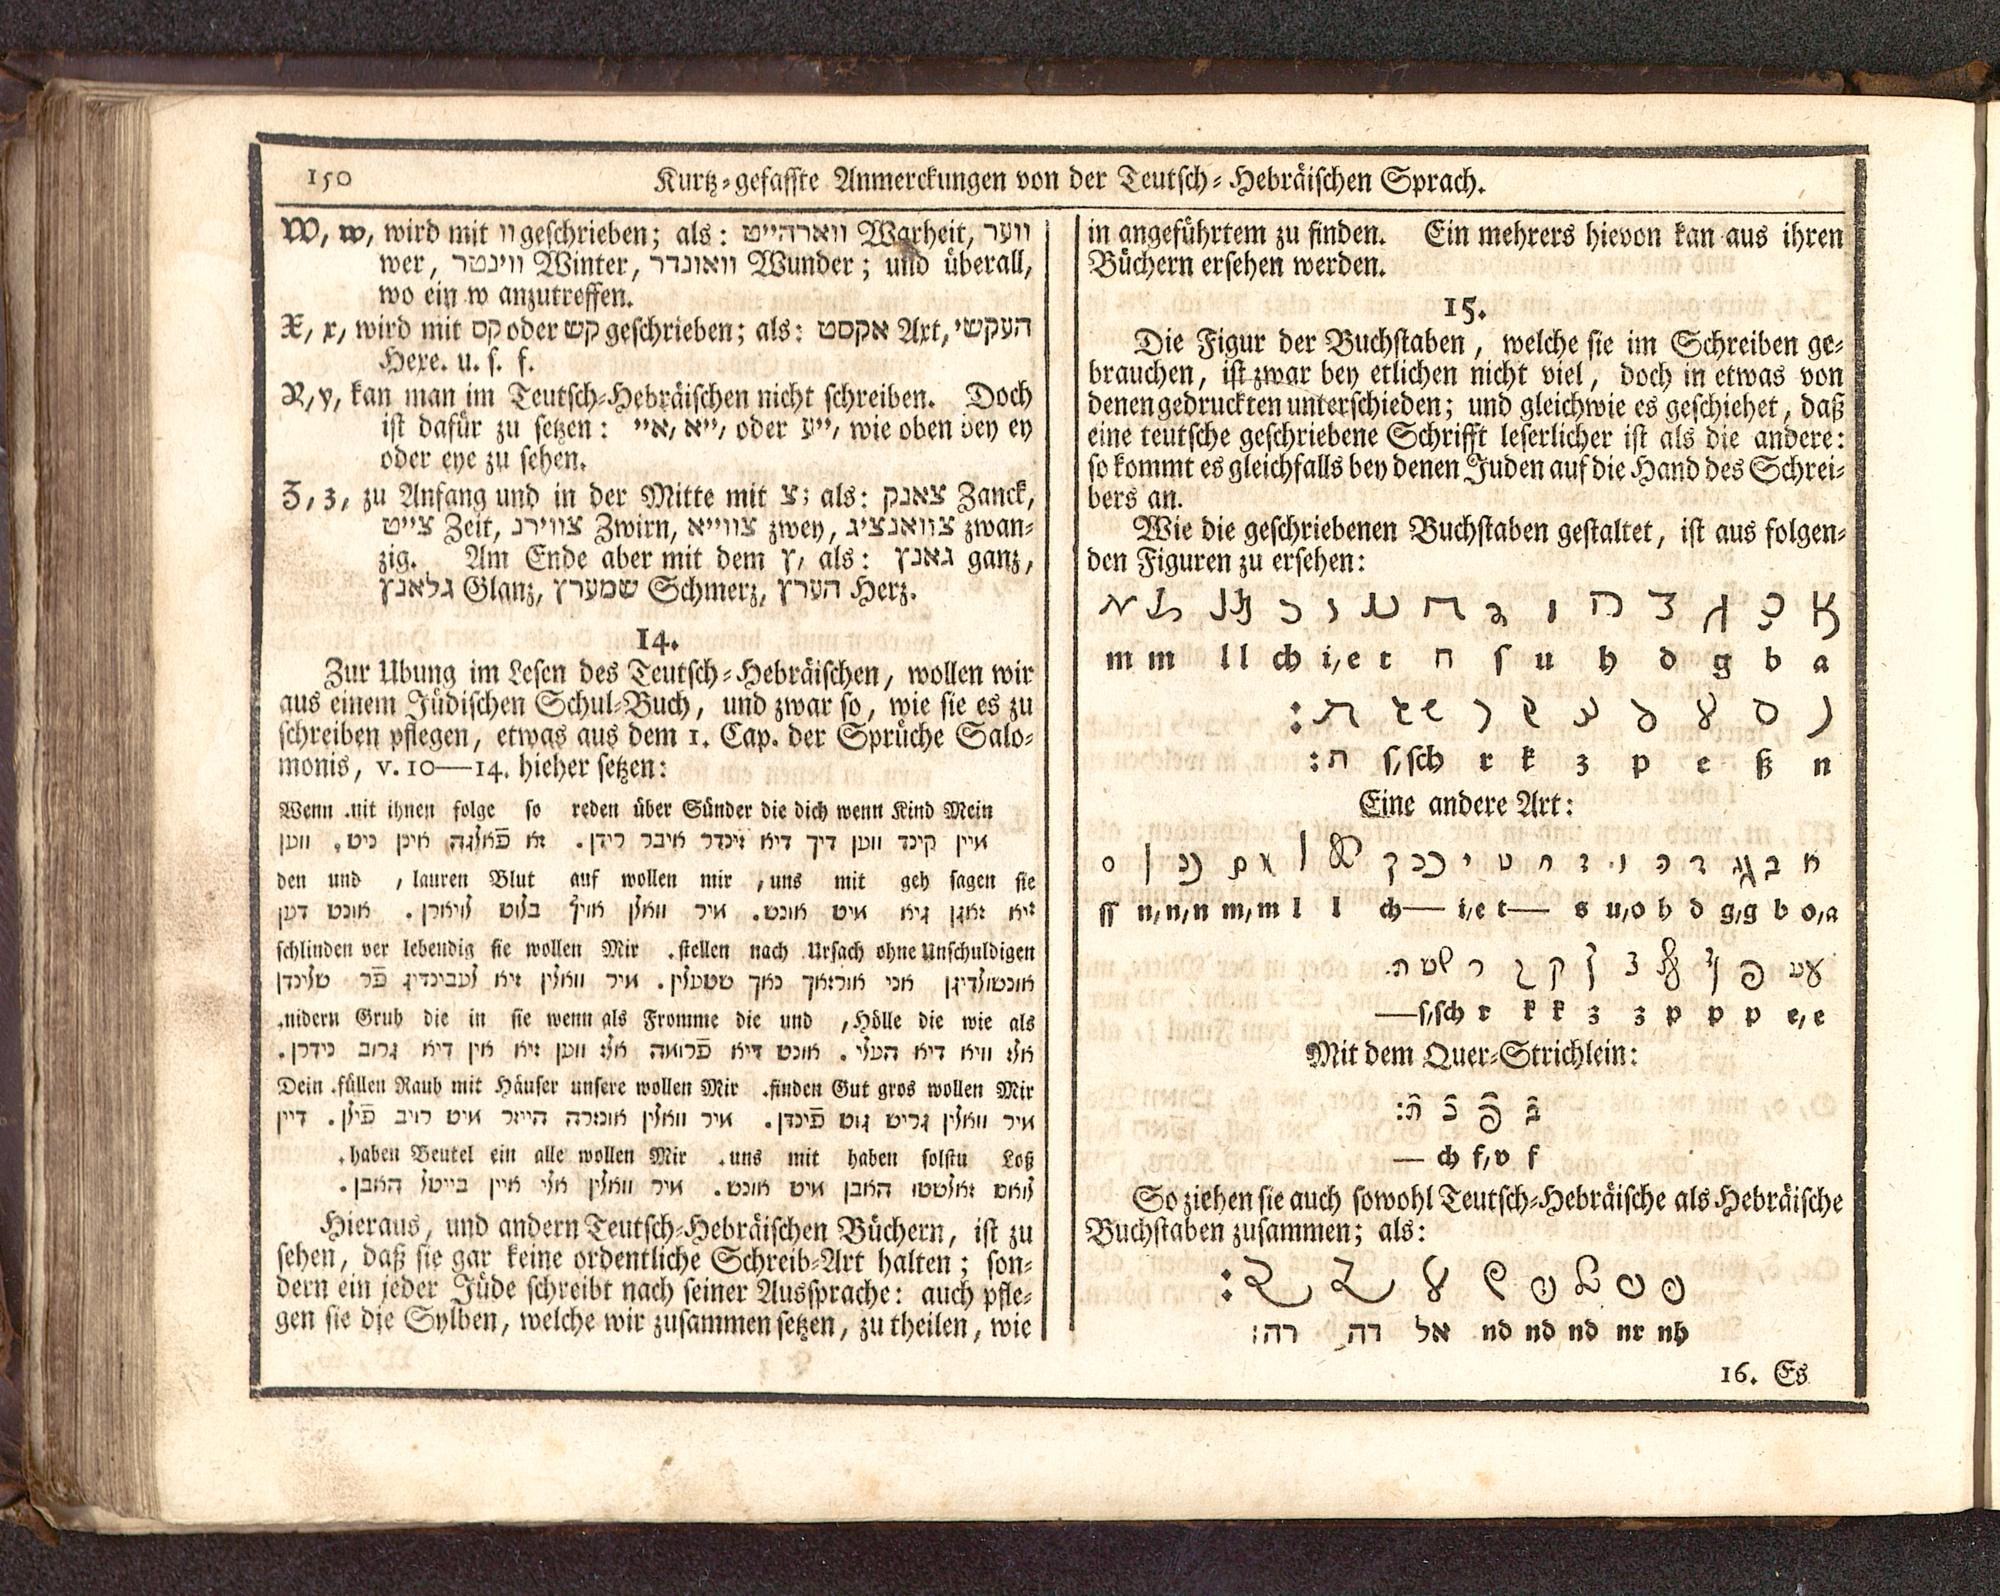 150
Kurtz-gefasste Anmerckungen von der Teutsch-Hebräischen Sprach.
W, w, wird mit וו geschrieben; als: ווארהייט Warheit, ווער
wer, ווינטר Winter, וואונדר Wunder; und überall,
wo ein w anzutreffen.
X, x, wird mit קס oder קש geschrieben; als: אקסט Axt, העקשי
Hexe. u. s. f.
Y, y, kan man im Teutsch-Hebräischen nicht schreiben. Doch
ist dafür zu setzen: איי, ייא, oder ייע, wie oben bey ey
oder eye zu sehen.
Z, z, zu Anfang und in der Mitte mit צ; als: צאנק Zanck,
צייט Zeit, צווירנ Zwirn, צווייא zwey, צוואנציג zwan-
zig. Am Ende aber mit dem ץ, als: גאנץ ganz,
גלאנץ Glanz, שמערץ Schmerz, הערץ Herz.
14.
Zur Ubung im Lesen des Teutsch-Hebräischen, wollen wir
aus einem Jüdischen Schul-Buch, und zwar so, wie sie es zu
schreiben pflegen, etwas aus dem 1. Cap. der Sprüche Salo-
monis, v. 10—14. hieher setzen:
Wenn .nit ihnen folge so reden über Sünder die dich wenn Kind Mein
מיין קינד ווען דיך דיא זינדר איבר רידן. זא פֿאלגה אינן ניט. ווען
den und , lauren Blut auf wollen mir , uns mit geh sagen sie
זיא זאגן גיא מיט אונש. מיר וואלן אויף בלוט לויארן. אונט דען
schlinden ver lebendig sie wollen Mir .stellen nach Ursach ohne Unschuldigen
אונשולדיגן אני אורזאך נאך שטעלין. מיר וואלין זיא לעבינדיג פֿר שלינדן
.nidern Grub die in sie wenn als Fromme die und , Hölle die wie als
אלז וויא דיא העלי. אונט דיא פֿרומה אלז ווען זיא אין דיא גרוב נידרן.
Dein .füllen Raub mit Häuser unsere wollen Mir .finden Gut gros wollen Mir
מיר וואלין גריש גוט פֿינדן. מיר וואלין אונזרה הייזר מיט רויב פֿילן. דיין
.haben Beutel ein alle wollen Mir .uns mit haben solstu Loß
לואש זאלשטו האבן מיט אונש. מיר וואלין אלי איין בייטל האבן.
Hieraus, und andern Teutsch-Hebräischen Büchern, ist zu
sehen, daß sie gar keine ordentliche Schreib-Art halten; son-
dern ein jeder Jüde schreibt nach seiner Aussprache: auch pfle-
gen sie die Sylben, welche wir zusammen setzen, zu theilen, wie
in angeführtem zu finden. Ein mehrers hievon kan aus ihren
Büchern ersehen werden.
15.
Die Figur der Buchstaben, welche sie im Schreiben ge-
brauchen, ist zwar bey etlichen nicht viel, doch in etwas von
denen gedruckten unterschieden; und gleichwie es geschiehet, daß
eine teutsche geschriebene Schrifft leserlicher ist als die andere:
so kommt es gleichfalls bey denen Juden auf die Hand des Schrei-
bers an.
Wie die geschriebenen Buchstaben gestaltet, ist aus folgen-
den Figuren zu ersehen:
m m l l ch i,e t ח s u h d g b a
ת: s,sch r k z p e ß n
Eine andere Art:
ff n,n,n m,m l l ch— i,e t— s u,o h d g,g b o,a
—s,sch r k k z z p p p e,e
Mit dem Quer-Strichlein:
בֿ פֿ כֿ תֿ:
— ch f,v f
So ziehen sie auch sowohl Teutsch-Hebräische als Hebräische
Buchstaben zusammen; als:
רה: דה אל nd nd nd nr nh
16. Es